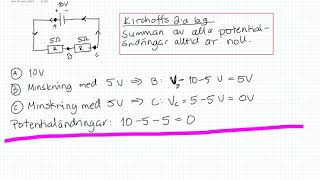 10V
A
5Ω
5Ω
R
B
R
Kirchoffs 2:a lag
Summan av alla potential-
ändringar alltid är noll.
A 10V
B Minskning med 5V ⇒ B: V_B = 10-5V = 5V
C Minskning med 5V ⇒ C: V_C = 5-5V = 0V
Potentialändringar: 10-5-5 = 0